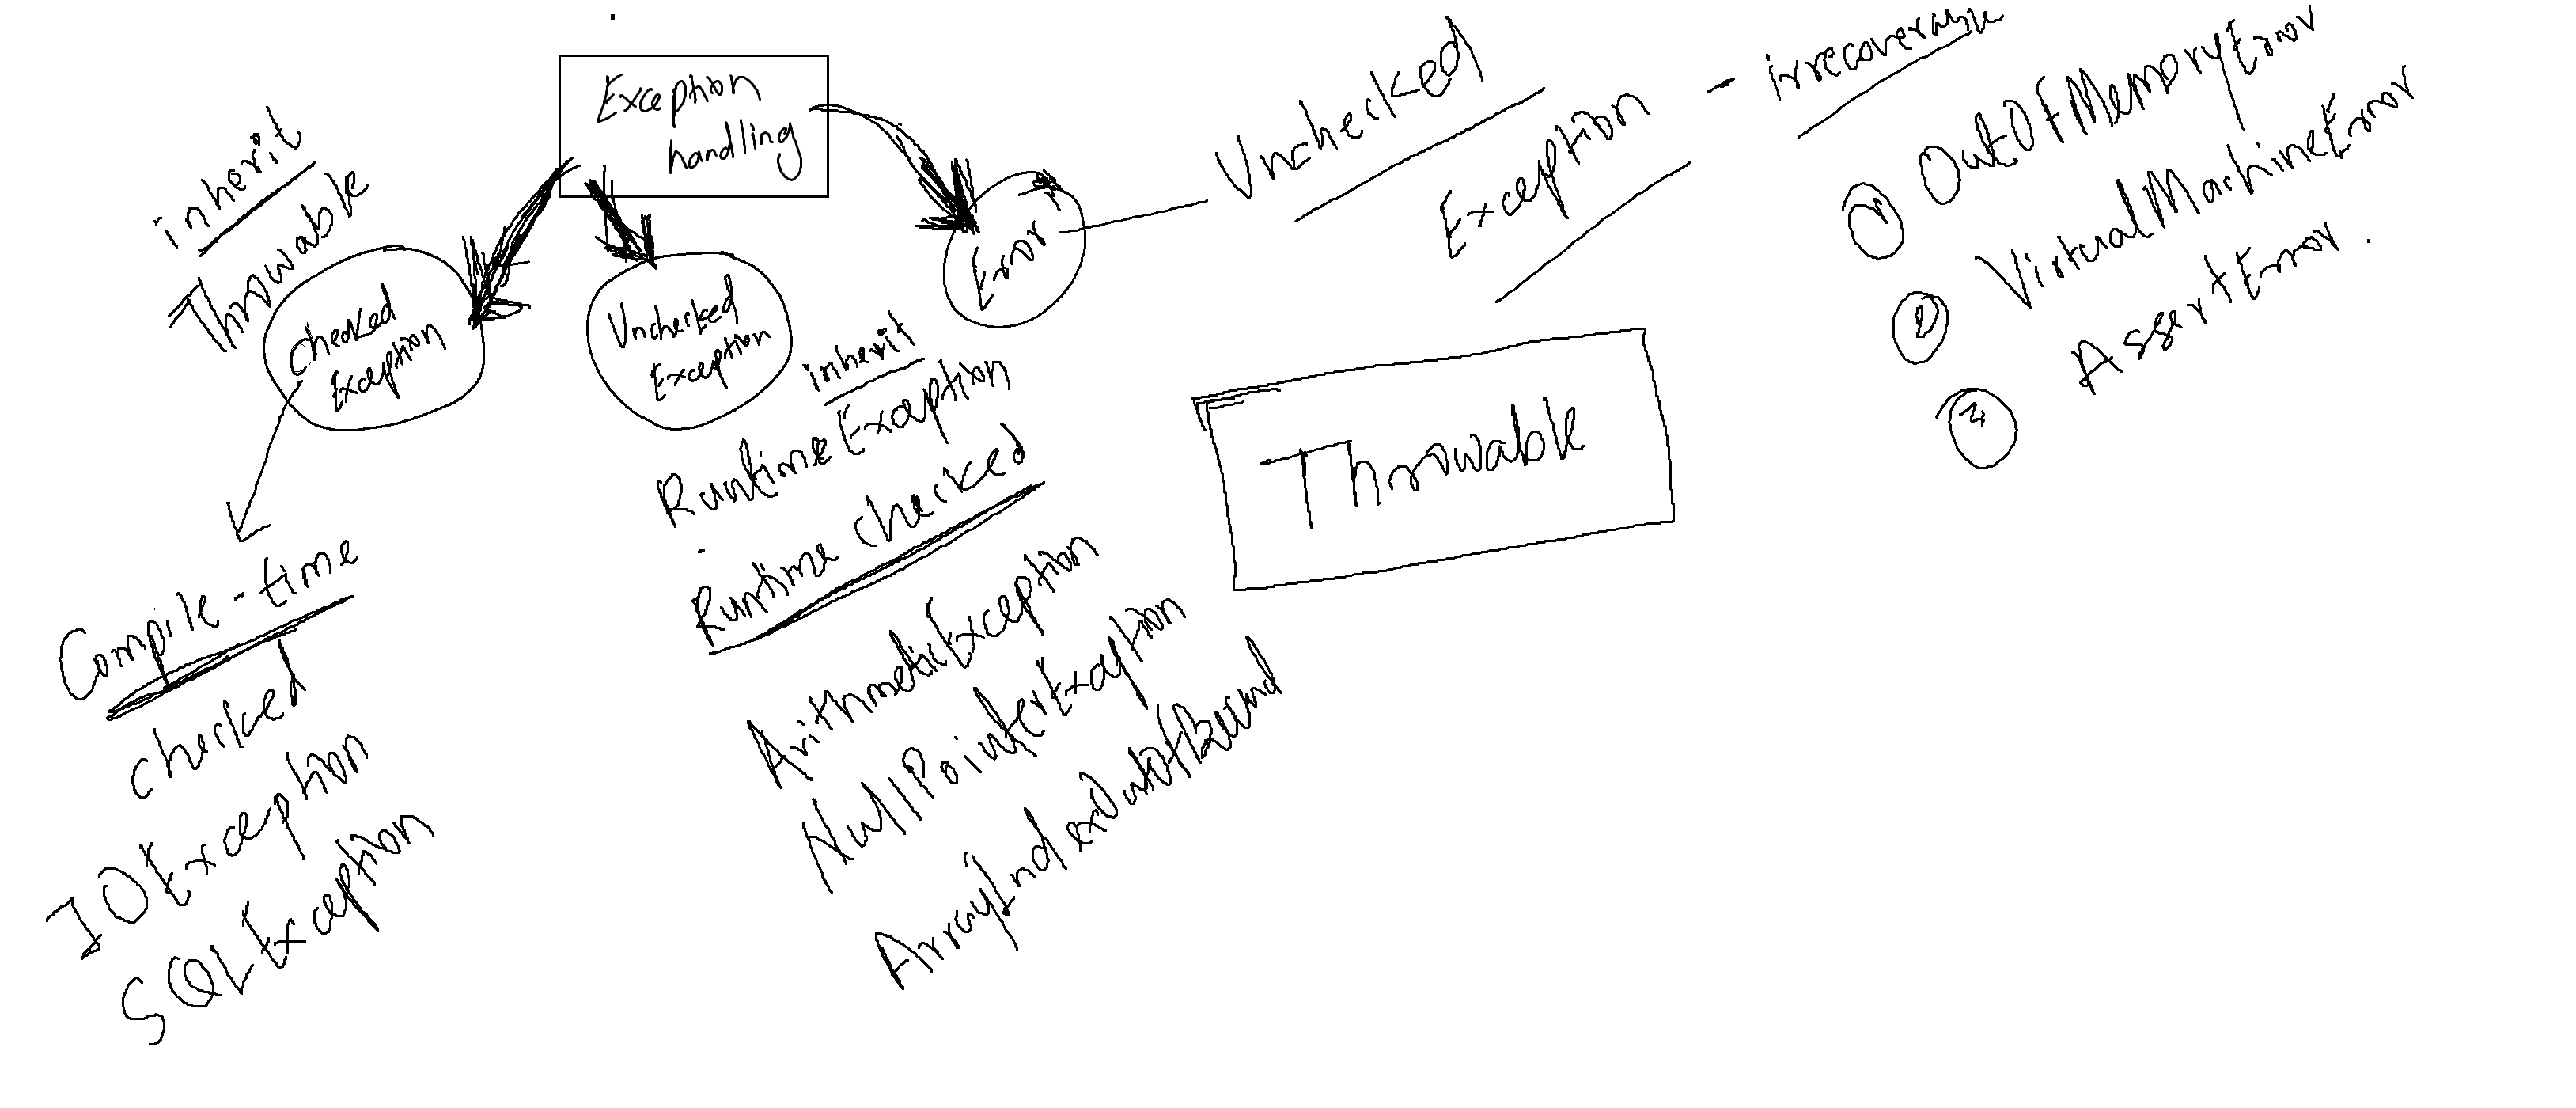 Exception
handling
inherit
Throwable
Checked
Exception
Compile-time
checked
IOException
SQLException
Unchecked
Exception
inherit
RuntimeException
Runtime checked
ArithmeticException
NullPointerException
ArrayIndexOutOfBound
Error
Unchecked
Exception - irrecoverable
1 OutOfMemoryError
2 VirtualMachineError
3 AssertError.
Throwable